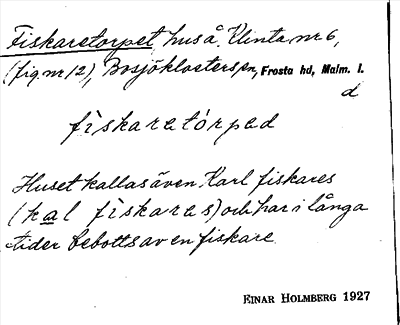 Fiskaretorpet, hus å Klinta nr 6,
(fig nr 12), Bosjöklosters sn, Frosta hd, Malm. l.
d
fiskaretórpad
Huset kallas även Karl fiskares
(kal fìskares) och har i långa
tider bebotts av en fiskare.
EINAR HOLMBERG 1927